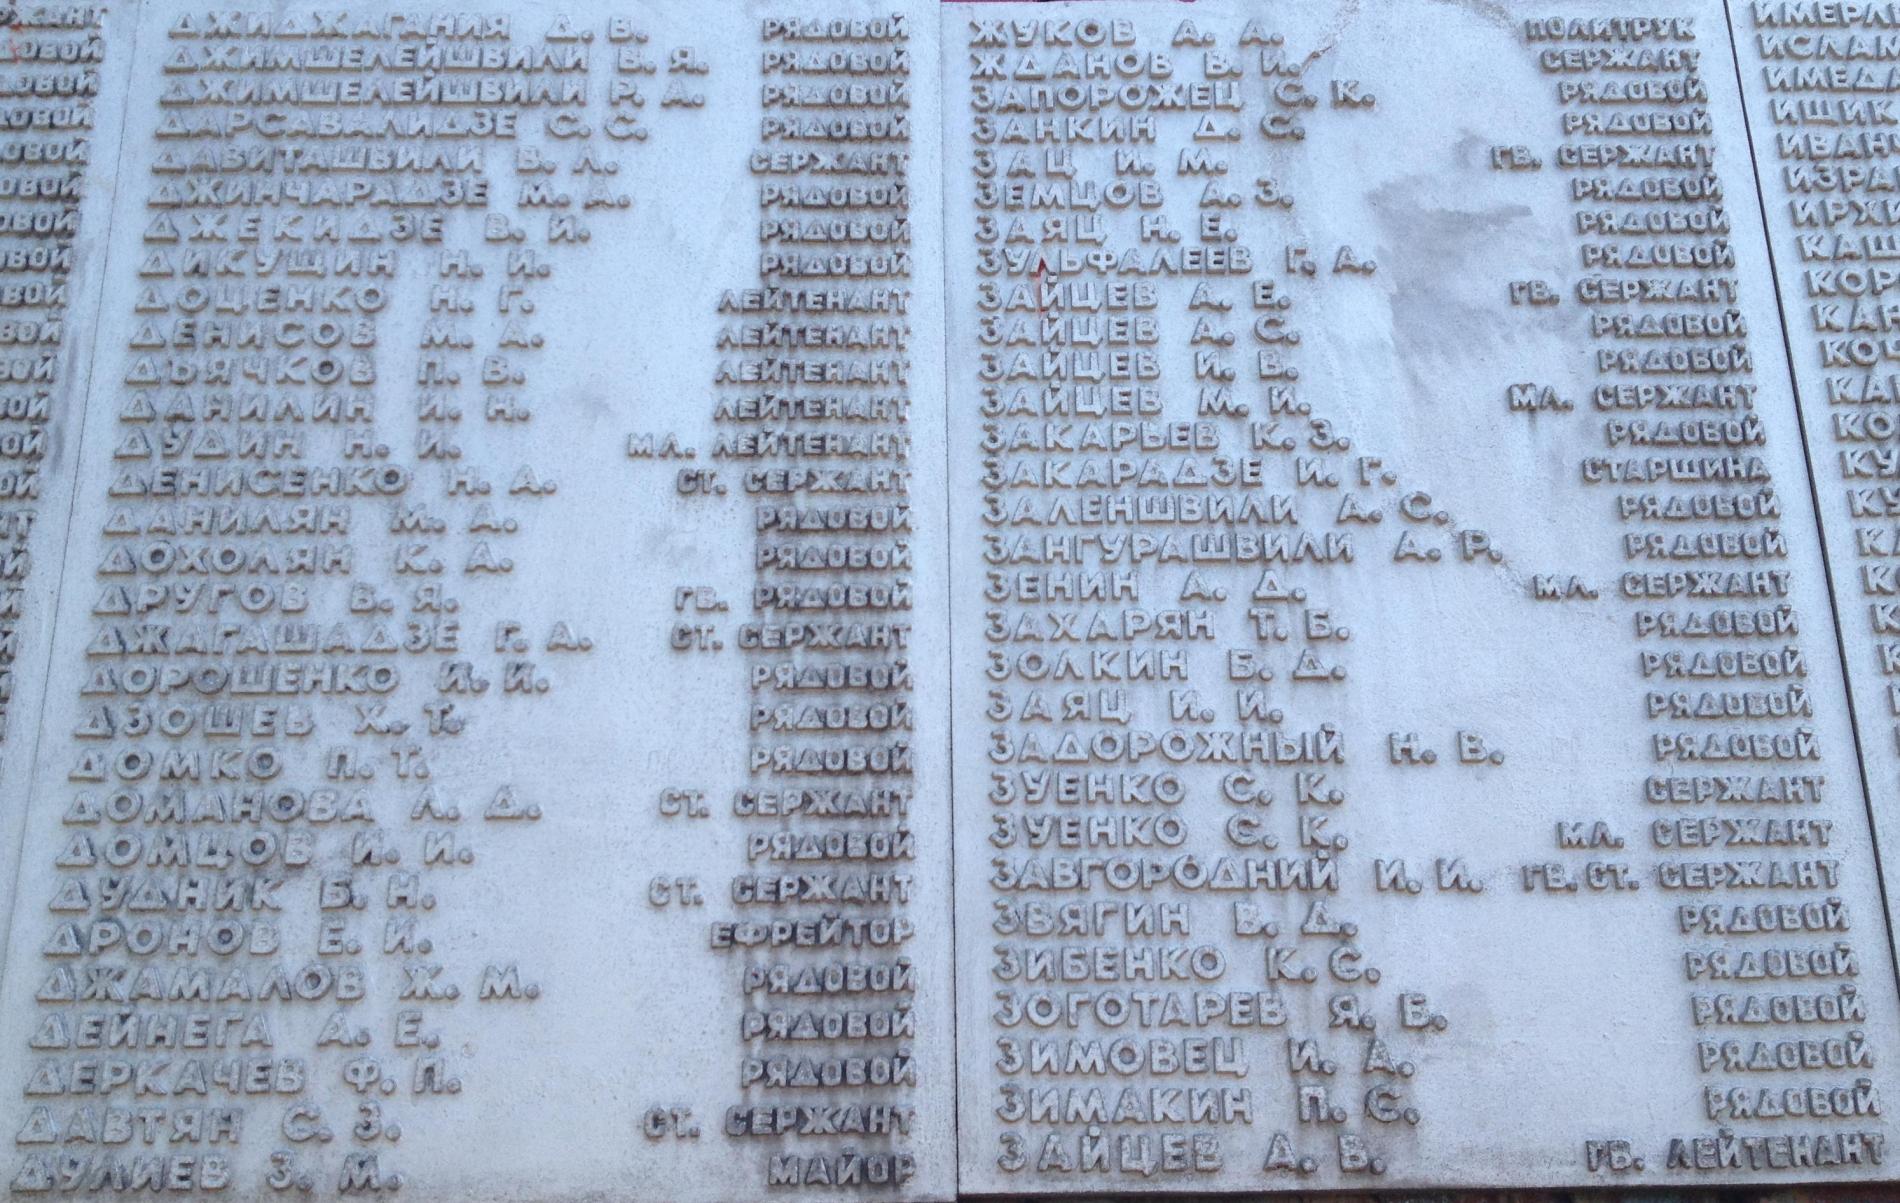 ДЖИДЖАГАНИЯ Д. В. РЯДОВОЙ
ДЖИМШЕЛЕЙШВИЛИ В. Я. РЯДОВОЙ
ДЖИМШЕЛЕЙШВИЛИ Р. А. РЯДОВОЙ
ДАРСАВАЛИДЗЕ С. С. РЯДОВОЙ
ДАВИТАШВИЛИ В. Л. СЕРЖАНТ
ДЖИНЧАРАДЗЕ М. А. РЯДОВОЙ
ДЖЕКИДЗЕ В. И. РЯДОВОЙ
ДИКУЩИН Н. И. РЯДОВОЙ
ДОЦЕНКО Н. Г. ЛЕЙТЕНАНТ
ДЕНИСОВ М. А. ЛЕЙТЕНАНТ
ДЬЯЧКОВ П. В. ЛЕЙТЕНАНТ
ДАНИЛИН И. Н. ЛЕЙТЕНАНТ
ДУДИН Н. И. МЛ. ЛЕЙТЕНАНТ
ДЕНИСЕНКО Н. А. СТ. СЕРЖАНТ
ДАНИЛЯН М. А. РЯДОВОЙ
ДОХОЛЯН К. А. РЯДОВОЙ
ДРУГОВ В. Я. ГВ. РЯДОВОЙ
ДЖАГАШАДЗЕ Г. А. СТ. СЕРЖАНТ
ДОРОШЕНКО И. И. РЯДОВОЙ
ДЗОШЕВ Х. Т. РЯДОВОЙ
ДОМКО П. Т. РЯДОВОЙ
ДОМАНОВА Л. Д. СТ. СЕРЖАНТ
ДОМЦОВ И. И. РЯДОВОЙ
ДУДНИК Б. Н. СТ. СЕРЖАНТ
ДРОНОВ Е. И. ЕФРЕЙТОР
ДЖАМАЛОВ Ж. М. РЯДОВОЙ
ДЕЙНЕГА А. Е. РЯДОВОЙ
ДЕРКАЧЕВ Ф. П. РЯДОВОЙ
ДАВТЯН С. З. СТ. СЕРЖАНТ
ДУЛИЕВ З. М. МАЙОР
ЖУКОВ А. А. ПОЛИТРУК
ЖДАНОВ В. И. СЕРЖАНТ
ЗАПОРОЖЕЦ С. К. РЯДОВОЙ
ЗАНКИН Д. С. РЯДОВОЙ
ЗАЦ И. М. ГВ. СЕРЖАНТ
ЗЕМЦОВ А. З. РЯДОВОЙ
ЗАЯЦ Н. Е. РЯДОВОЙ
ЗУЛЬФАЛЕЕВ Г. А. РЯДОВОЙ
ЗАЙЦЕВ А. Е. ГВ. СЕРЖАНТ
ЗАЙЦЕВ А. С. РЯДОВОЙ
ЗАЙЦЕВ И. В. РЯДОВОЙ
ЗАЙЦЕВ М. И. МЛ. СЕРЖАНТ
ЗАКАРЬЕВ К. З. РЯДОВОЙ
ЗАКАРАДЗЕ И. Г. СТАРШИНА
ЗАЛЕНШВИЛИ А. С. РЯДОВОЙ
ЗАНГУРАШВИЛИ А. Р. РЯДОВОЙ
ЗЕНИН А. Д. МЛ. СЕРЖАНТ
ЗАХАРЯН Т. Б. РЯДОВОЙ
ЗОЛКИН Б. Д. РЯДОВОЙ
ЗАЯЦ И. И. РЯДОВОЙ
ЗАДОРОЖНЫЙ Н. В. РЯДОВОЙ
ЗУЕНКО С. К. СЕРЖАНТ
ЗУЕНКО С. К. МЛ. СЕРЖАНТ
ЗАВГОРОДНИЙ И. И. ГВ. СТ. СЕРЖАНТ
ЗВЯГИН В. Д. РЯДОВОЙ
ЗИБЕНКО К. С. РЯДОВОЙ
ЗОГОТАРЕВ Я. Б. РЯДОВОЙ
ЗИМОВЕЦ И. А. РЯДОВОЙ
ЗИМАКИН П. С. РЯДОВОЙ
ЗАЙЦЕВ А. В. ГВ. ЛЕЙТЕНАНТ